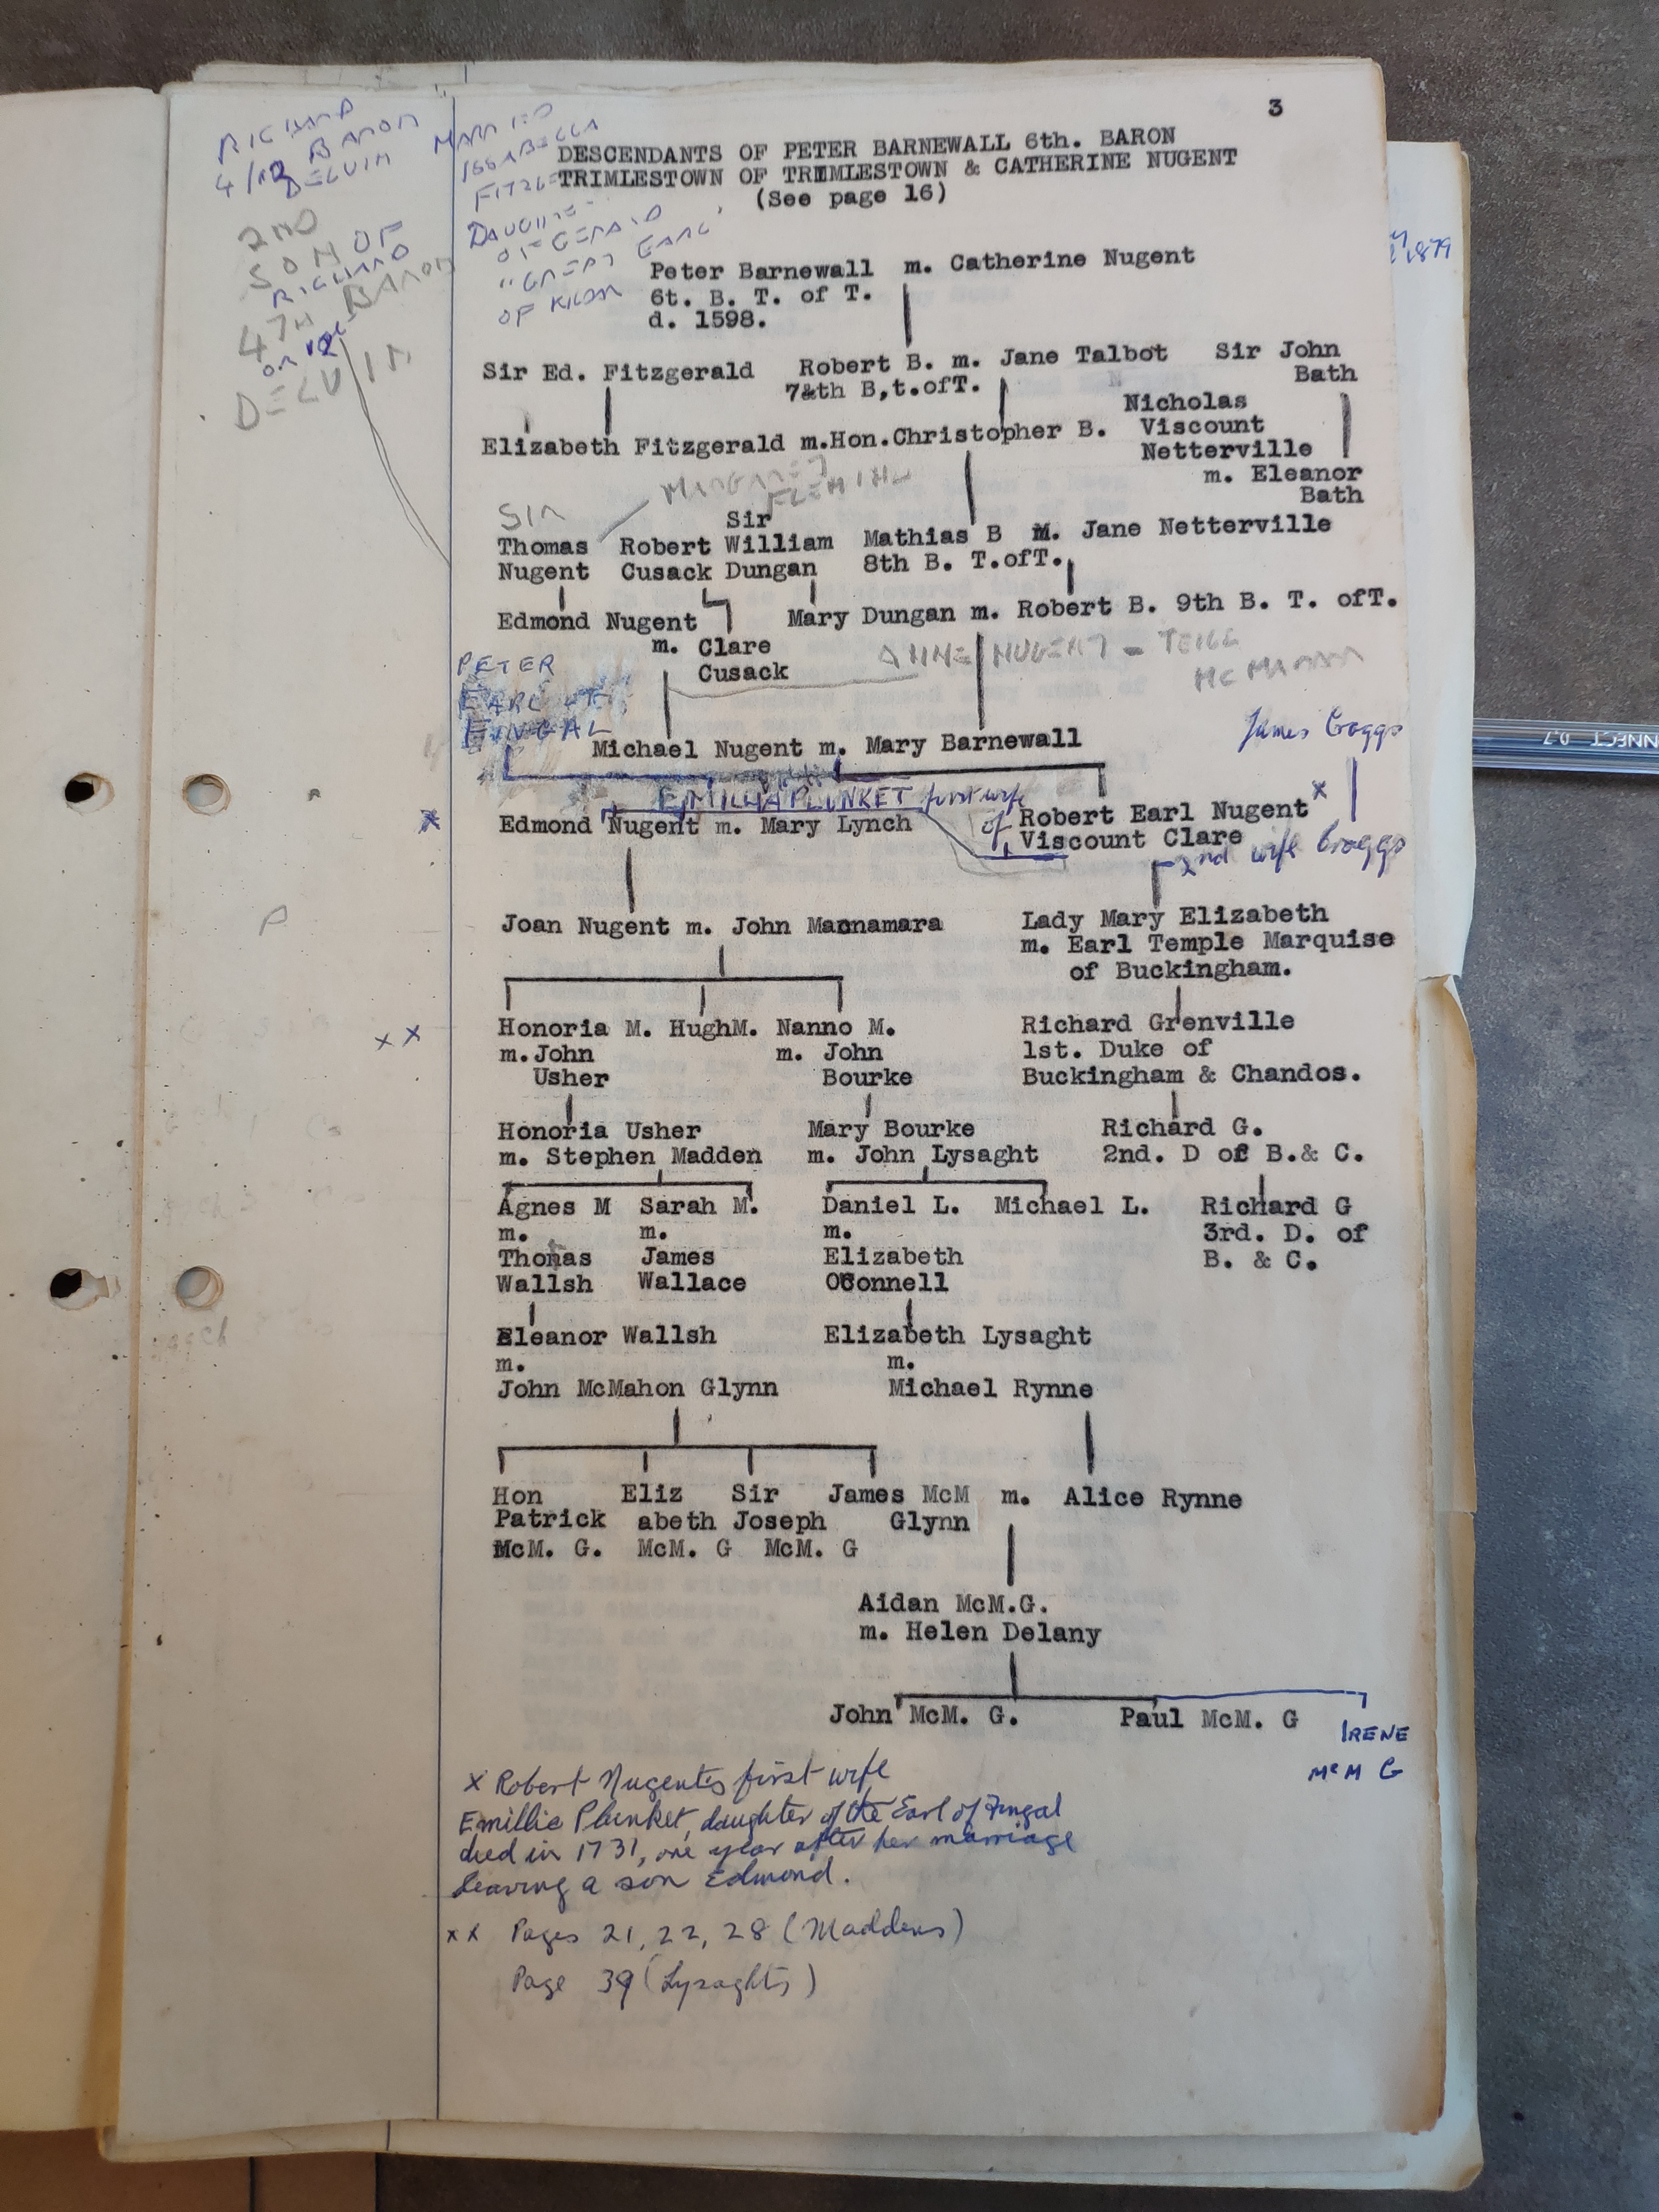 3
DESCENDANTS OF PETER BARNEWALL 6th. BARON
TRIMLESTOWN OF TRIMLESTOWN & CATHERINE NUGENT
(See page 16)
RICHARD
4/12 BARON
DELVIN
MARRIED
ISSABELLA
FITZGE
DAUGHTE
OF GERALD
"GREAT EARL"
OF KILDAR
2ND
SON OF
RICHARD
4TH BARON
or 12
DELVIN
1879
Peter Barnewall m. Catherine Nugent
6t. B. T. of T.
d. 1598.
Sir Ed. Fitzgerald Robert B. m. Jane Talbot Sir John
7&th B,t.ofT. Bath
Nicholas
Elizabeth Fitzgerald m.Hon.Christopher B. Viscount
Netterville
m. Eleanor
Bath
MARGARET
FLEMING
SIR
Sir
Thomas Robert William Mathias B M. Jane Netterville
Nugent Cusack Dungan 8th B. T.ofT.
Edmond Nugent Mary Dungan m. Robert B. 9th B. T. ofT.
m. Clare
Cusack
ANNE NUGENT - TEIGE
MCMAHON
PETER
EARL OF
FINGAL
James Craggs
Michael Nugent m. Mary Barnewall
EMILIA PLUNKET first wife
of
Edmond Nugent m. Mary Lynch Robert Earl Nugent x
Viscount Clare
2nd wife Craggs
x
Joan Nugent m. John Macnamara Lady Mary Elizabeth
m. Earl Temple Marquise
of Buckingham.
P
x x
Honoria M. HughM. Nanno M. Richard Grenville
m. John m. John 1st. Duke of
Usher Bourke Buckingham & Chandos.
Honoria Usher Mary Bourke Richard G.
m. Stephen Madden m. John Lysaght 2nd. D of B.& C.
Agnes M Sarah M. Daniel L. Michael L. Richard G
m. m. m. 3rd. D. of
Thomas James Elizabeth B. & C.
Wallsh Wallace OConnell
Eleanor Wallsh Elizabeth Lysaght
m. m.
John McMahon Glynn Michael Rynne
Hon Eliz Sir James McM m. Alice Rynne
Patrick abeth Joseph Glynn
McM. G. McM. G McM. G
Aidan McM.G.
m. Helen Delany
John McM. G. Paul McM. G IRENE
McM G
x Robert Nugents first wife
Emillie Plunket, daughter of the Earl of Fingal
died in 1731, one year after her marriage
leaving a son Edmond.
x x Pages 21, 22, 28 (Maddens)
Page 39 (Lysaghts)